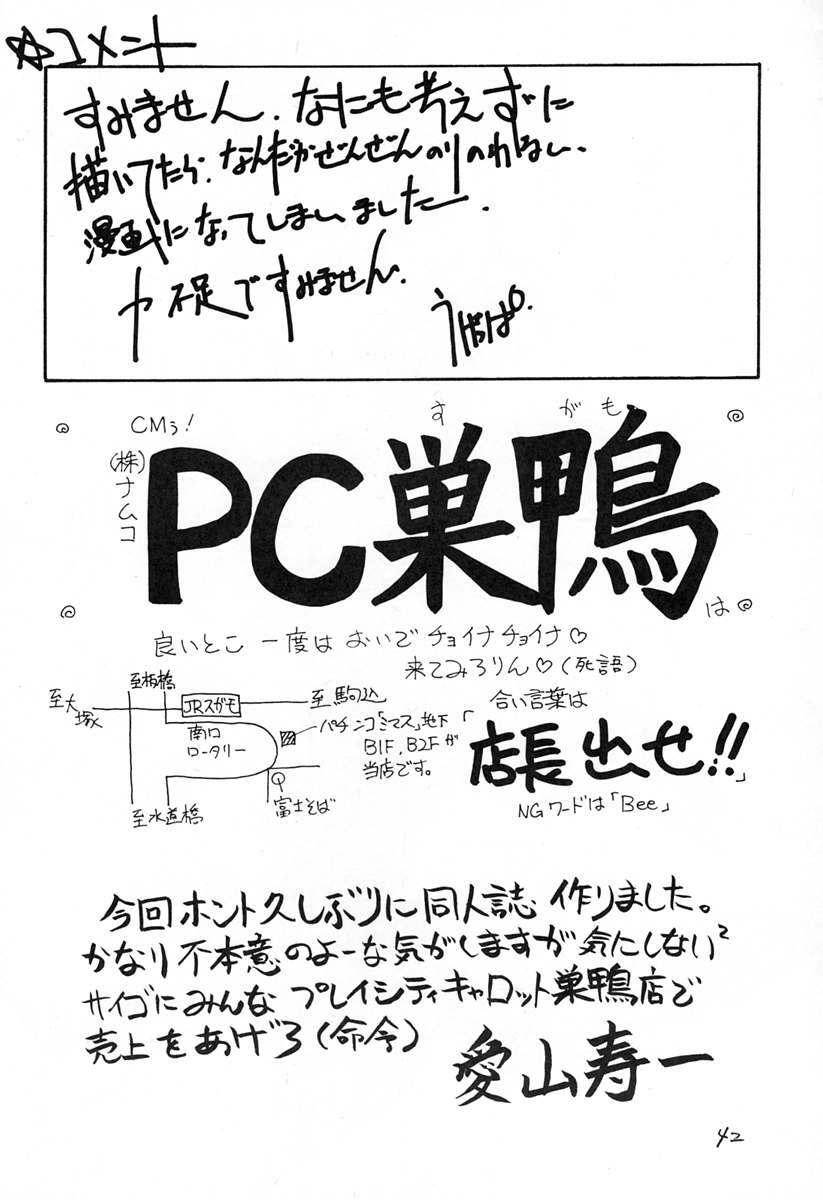 ☆コメント
すみません. なにも考えずに
描いてたら. なんだかぜんぜんのりのわるい.
漫画になってしまいました.
力不足ですみません.
CMぅ!
(株)ナムコ
すがも
PC巣鴨
は
良いとこ 一度は おいで チョイナ チョイナ♡
来てみろりん♡(死語)
至大塚
至板橋
JRスがも
至 駒込
南口
ロータリー
パチンコ「ミマス」地下
B1F, B2Fが
当店です。
至水道橋
富士そば
合い言葉は
「店長出せ!!」
NGワードは「Bee」
今回ホント久しぶりに同人誌 作りました。
かなり不本意のよーな気がしますが気にしない²
サイゴにみんな プレイシティキャロット巣鴨店で
売上をあげろ(命令)
愛山寿一
42